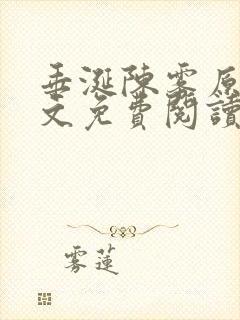 垂涎陳雾原
文免費閱讀
雾蓮